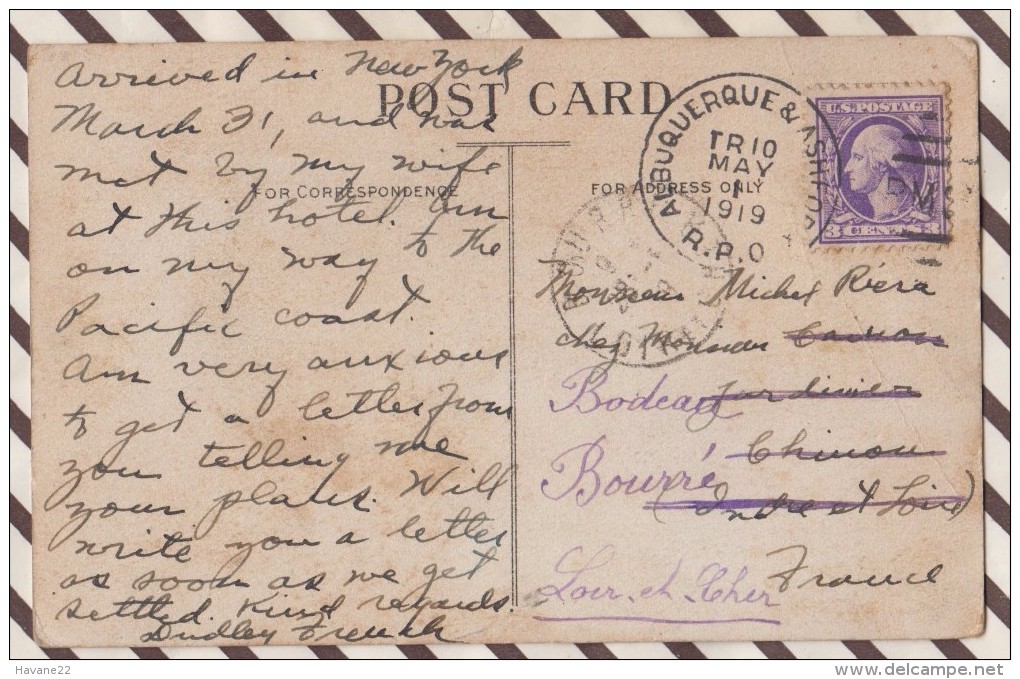 POST CARD
FOR CORRESPONDENCE
FOR ADDRESS ONLY
Arrived in New York
March 31, and was
met by my wife
at this hotel. Am
on my way to the
Pacific coast.
Am very anxious
to get a letter from
you telling me
your plans. Will
write you a letter
as soon as we get
settled. Kind regards.
Dudley French
ALBUQUERQUE & ASHFORK
TR 10
MAY
1
1919
R.P.O
U.S. POSTAGE
3 CENTS 3
RMS
Monsieur Michel Riera
chez Monsieur
Bodeau jardinier
Chinon
Bourré
(Indre et Loire)
Loir-et-Cher
France
Havane22
www.delcampe.net